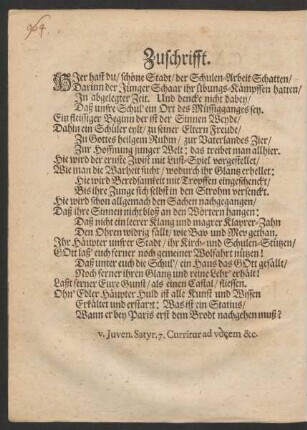 964.
Zuschrifft.
HJer hast du/ schöne Stadt/ der Schulen-Arbeit Schatten/
Darinn der Jünger Schaar ihr übungs-Kämpffen hatten/
Jn abgelegter Zeit. Und dencke nicht dabey/
Daß unsre Schul' ein Ort des Müssigganges sey.
Ein fleissiger Beginn der ist der Sinnen Weyde/
Dahin ein Schüler eylt/ zu seiner Eltern Freude/
Zu Gottes heilgem Ruhm/ zur Vaterlandes Zier/
Zur Hoffnung junger Welt: das treibet man allhier.
Hie wird der ernste Zwist mit Lust-Spiel vorgestellet/
Wie man die Warheit sucht/ wodurch ihr Glantz erhellet:
Hie wird Beredsamkeit mit Tropffen eingeschenckt/
Bis ihre Zunge sich selbst in den Strohm versenckt.
Hie wird schon allgemach den Sachen nachgegangen/
Daß ihre Sinnen nicht bloß an den Wörtern hangen:
Daß nicht ein leerer Klang und magrer Klapper-Zahn
Den Ohren widrig fällt/ wie Bav und Mev gethan.
Jhr Häupter unsrer Stadt/ ihr Kirch- und Schulen-Stützen/
GOtt lass' euch ferner noch gemeiner Wolfahrt nützen!
Daß unter euch die Schul'/ ein Haus das GOtt gefällt/
Noch ferner ihren Glantz und reine Lehr' erhält!
Lasst ferner Eure Gunst/ als einen Castal/ fliessen.
Ohn' Edler Häupter Huld ist alle Kunst und Wissen
Erkältet und erstarrt: Was ist ein Statius/
Wann er bey Paris erst dem Brodt nachgehen muß?
v. Juven. Satyr. 7. Curritur ad vocem &c.